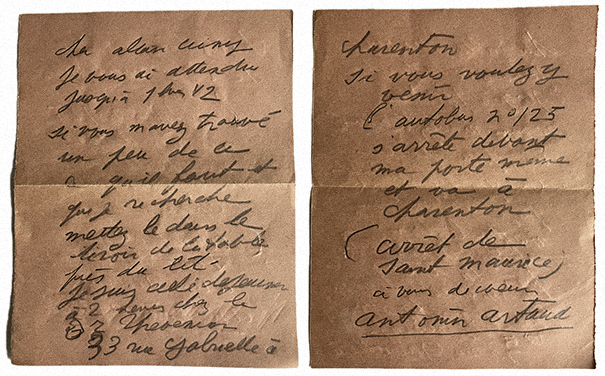 cher alain cuny
Je vous ai attendu
jusqu'à 1 h 1/2
si vous m'avez trouvé
un peu de ce
qu'il faut et
que je recherche
mettez le dans le
tiroir de la table
près du lit.
Je suis allé déjeuner
à 2 heures chez le
Thevenin
33 rue Gabrielle à
charenton
si vous voulez y
venir
l'autobus n° 125
s'arrête devant
ma porte meme
et va à
charenton
(arrêt de
Saint Maurice)
à vous de coeur
antonin artaud